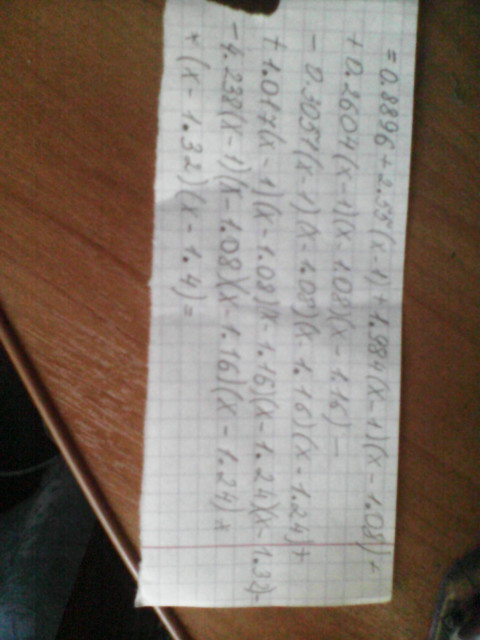 = 0.8896 + 2.55(x-1) + 1.984(x-1)(x-1.08) +
+ 0.2604(x-1)(x-1.08)(x-1.16) -
- 0.3051(x-1)(x-1.08)(x-1.16)(x-1.24) +
+ 1.017(x-1)(x-1.08)(x-1.16)(x-1.24)(x-1.32) -
- 4.238(x-1)(x-1.08)(x-1.16)(x-1.24) x
* (x-1.32)(x-1.4) =